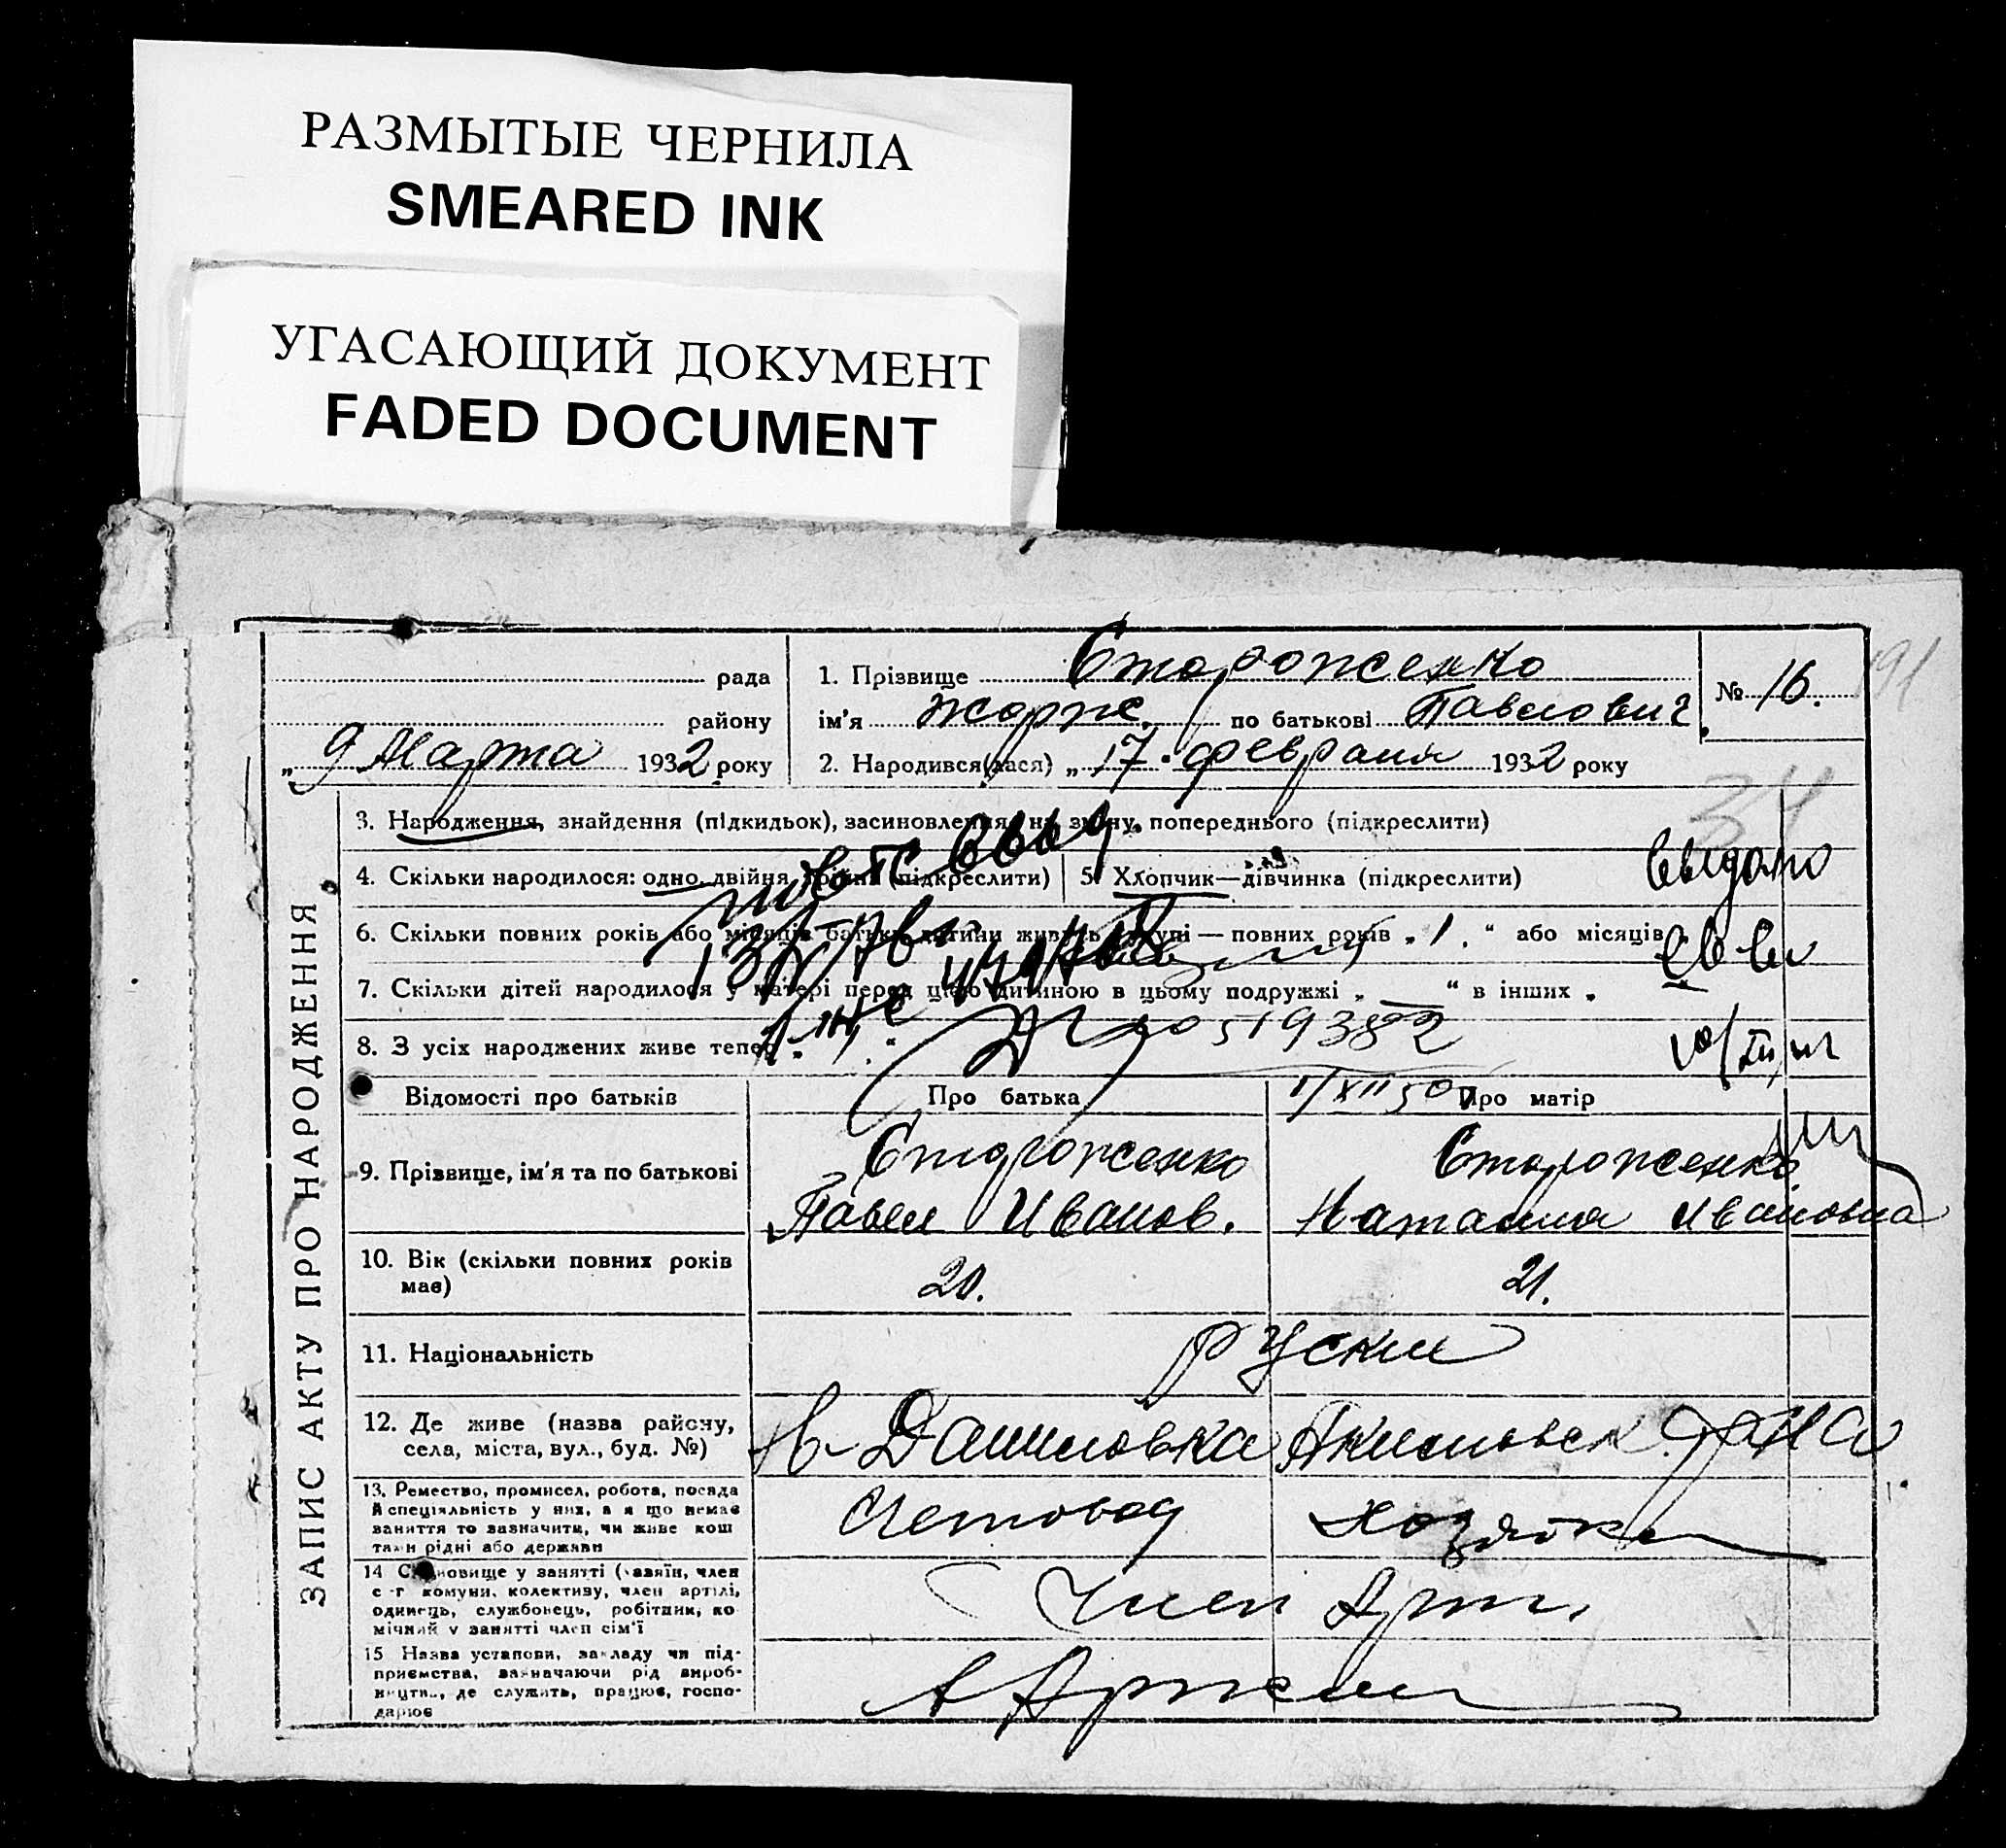 РАЗМЫТЫЕ ЧЕРНИЛА
SMEARED INK
УГАСАЮЩИЙ ДОКУМЕНТ
FADED DOCUMENT
рада
району
„ 9 Марта 1932 року
1. Прізвище Стороженко
ім'я Жорж. по батькові Павлович
2. Народився(лася) „ 17 " февраля 1932 року
№ 16.
191
34
ЗАПИС АКТУ ПРО НАРОДЖЕННЯ
3. Народження, знайдення (підкидьок), засиновлення, на зміну попереднього (підкреслити)
4. Скільки народилося: одно, двійня, трійня (підкреслити)
5. Хлопчик—дівчинка (підкреслити)
Выдано
6. Скільки повних років або місяців батьки дитини живуть вкупі — повних років „ 1. " або місяців „
7. Скільки дітей народилося у матері перед цією дитиною в цьому подружжі „ — " в інших „
8. З усіх народжених живе тепер „
519382
Відомості про батьків
Про батька
Про матір
9. Прізвище, ім'я та по батькові
Стороженко
Павел Иванов.
Стороженко
Наталия Ивановна
10. Вік (скільки повних років має)
20.
21.
11. Національність
Руские
12. Де живе (назва району, села, міста, вул., буд. №)
Н-Даниловка Акимовск. р-на
13. Ремество, промисел, робота, посада й спеціяльність у них, а я що немає заняття то зазначити, чи живе кош там рідні або держави
Счетовод
Хозяйка
14 Становище у занятті (хазяїн, член с-г комуни, колективу, член артілі, одинець, службовець, робітник, ко мічний у занятті член сім'ї
Член Арт.
15 Назва установи, закладу чи підприємства, зазначаючи рід виробництва, де служить, працює, господарює